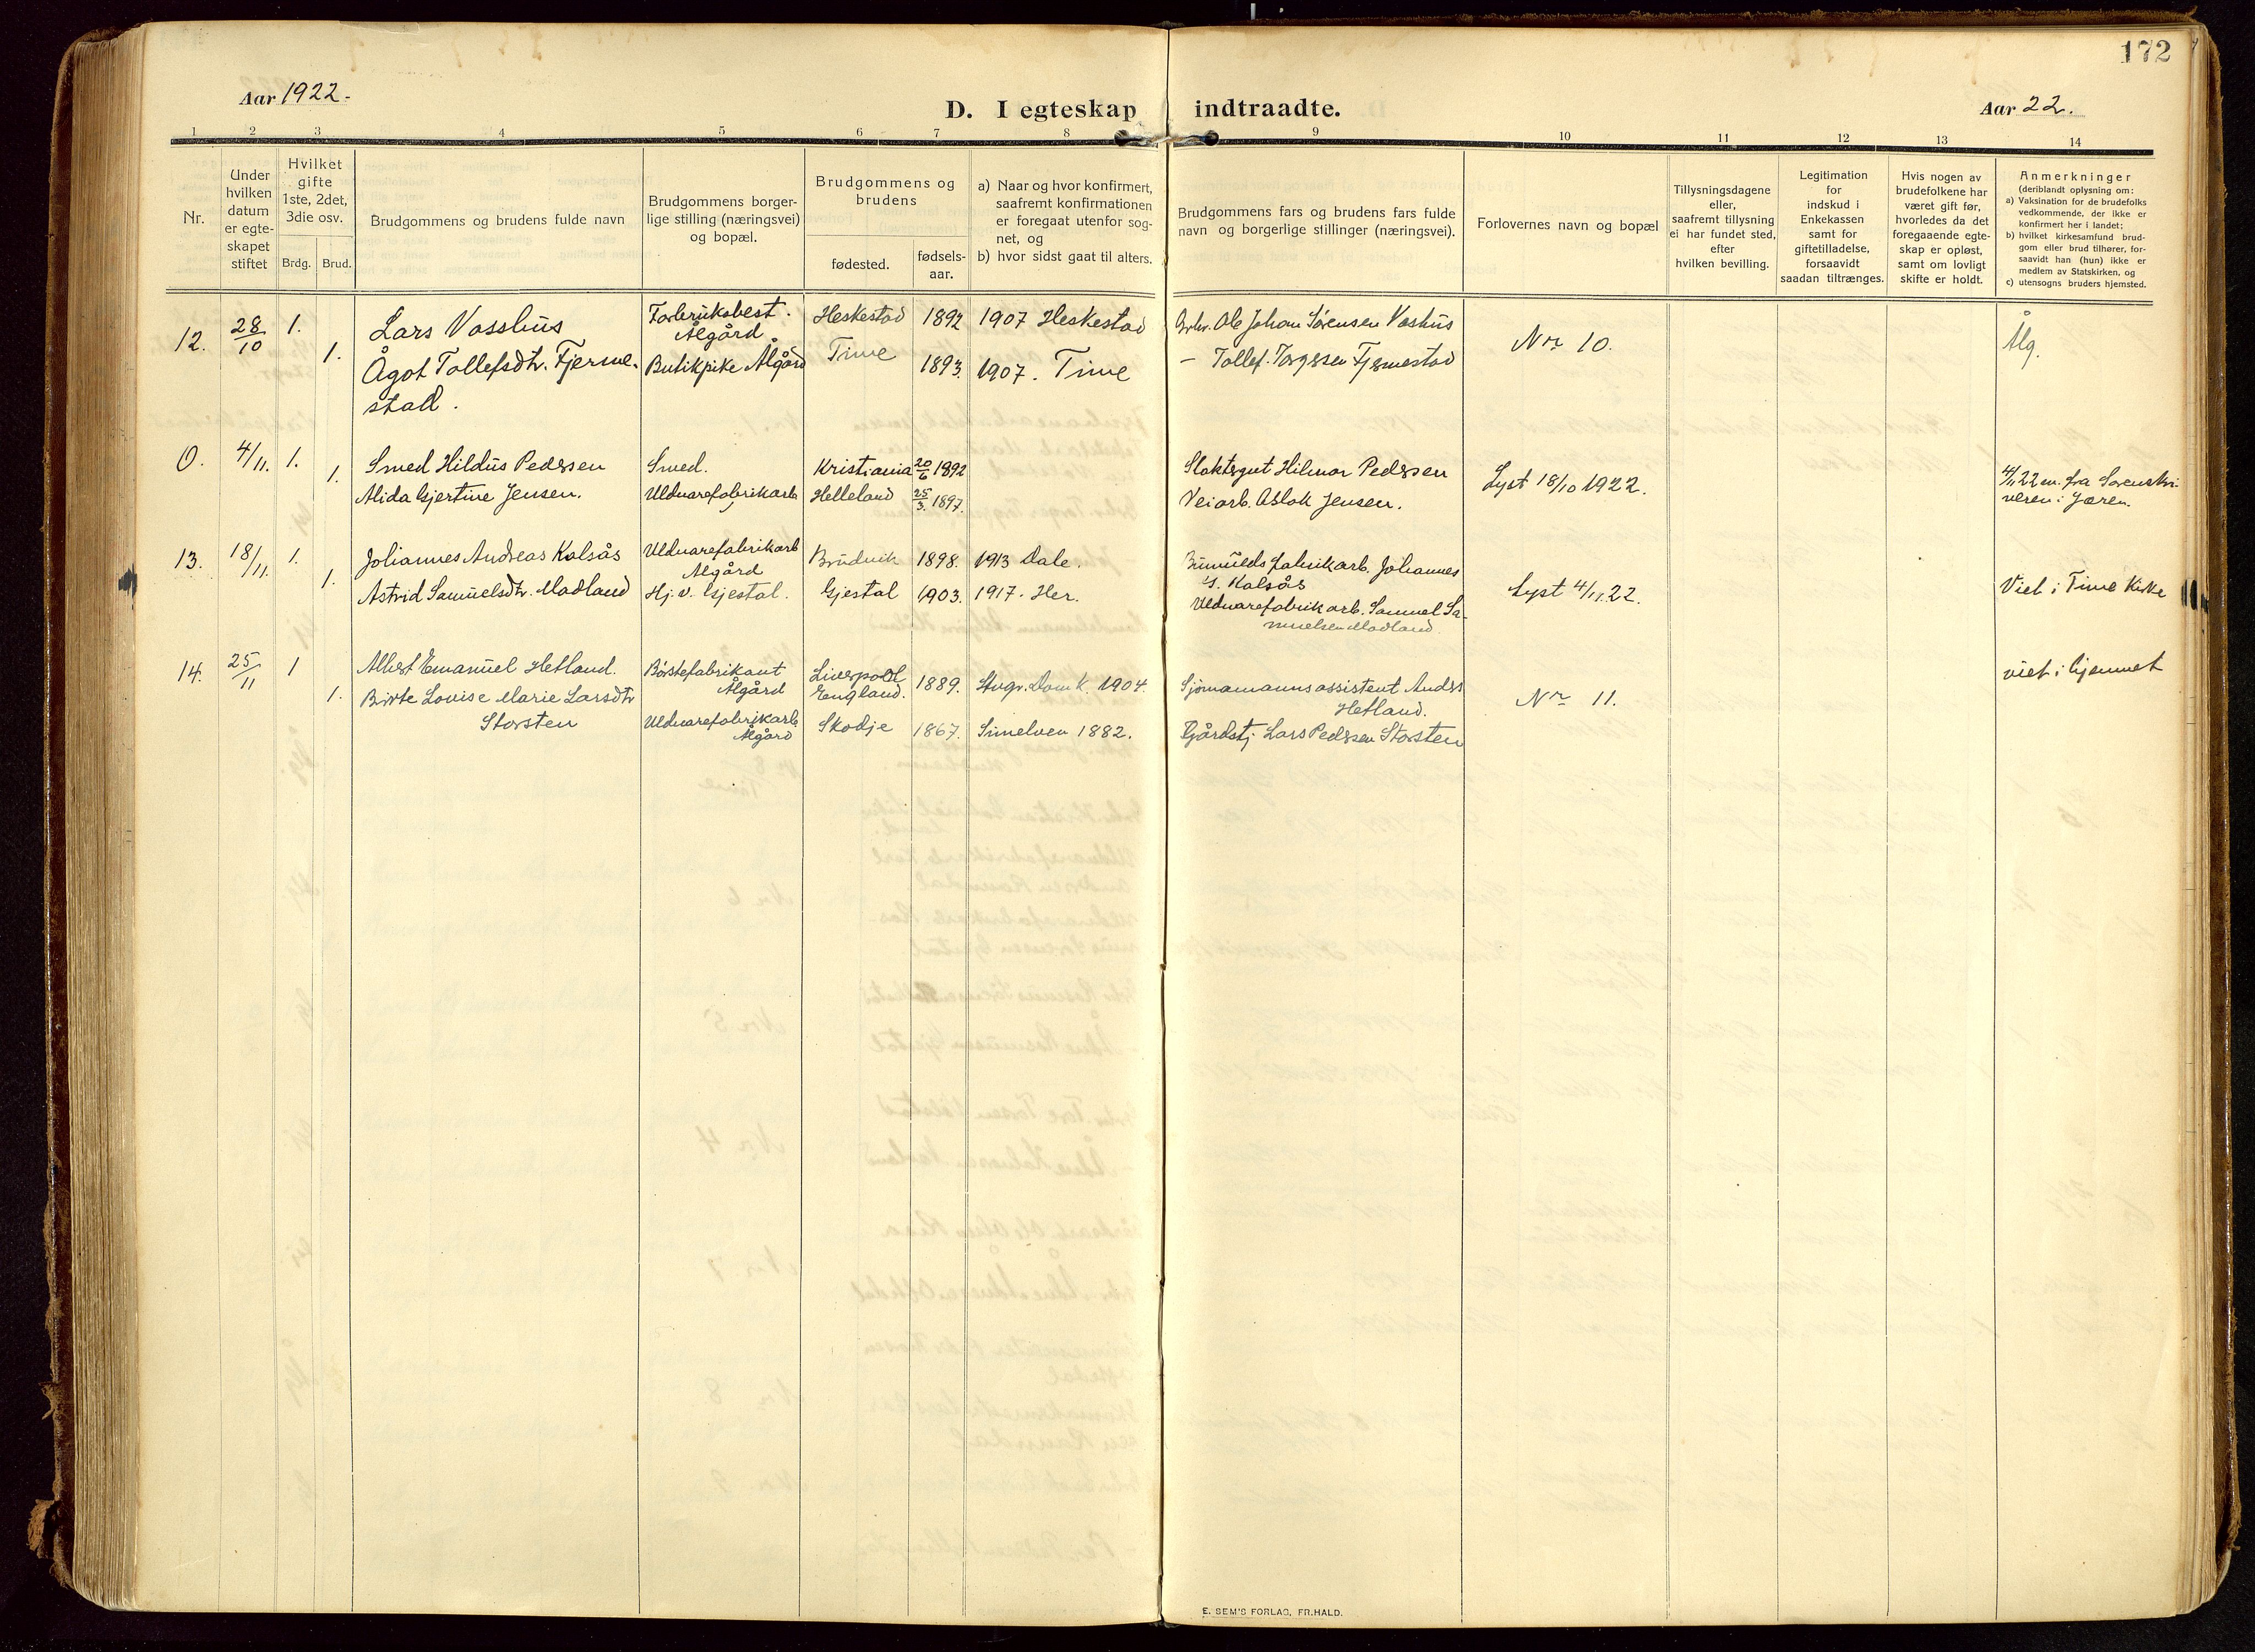 172
Aar 1922.
D. I egteskap indtraadte.
Aar 22.
1 2 3 4 5 6 7 8 9 10 11 12 13 14
Nr.
Under
hvilken
datum
er egte-
skapet
stiftet
Hvilket
gifte
1ste, 2det,
3die osv.
Brdg. Brud.
Brudgommens og brudens fulde navn
Brudgommens borger-
lige stilling (næringsvei)
og bopæl.
Brudgommens og
brudens
fødested.
fødsels-
aar.
a) Naar og hvor konfirmert,
saafremt konfirmationen
er foregaat utenfor sog-
net, og
b) hvor sidst gaat til alters.
Brudgommens fars og brudens fars fulde
navn og borgerlige stillinger (næringsvei).
Forlovernes navn og bopæl
Tillysningsdagene
eller,
saafremt tillysning
ei har fundet sted,
efter
hvilken bevilling.
Legitimation
for
indskud i
Enkekassen
samt for
giftetilladelse,
forsaavidt
saadan tiltrænges.
Hvis nogen av
brudefolkene har
været gift før,
hvorledes da det
foregaaende egte-
skap er opløst,
samt om lovligt
skifte er holdt.
Anmerkninger
(deriblandt oplysning om:
a) Vaksination for de brudefolks
vedkommende, der ikke er
konfirmert her i landet;
b) hvilket kirkesamfund brud-
gom eller brud tilhører, for-
saavidt han (hun) ikke er
medlem av Statskirken, og
c) utensogns bruders hjemsted.
12. 28/10 1. 1.
Lars Vasshus
Ågot Tollefsdtr. Fjerme-
stad.
Fabriksbest.
Ålgård
Butikpike Ålgård
Heskestad 1892 1907 Heskestad
Time 1893. 1907. Time
Ole Johan Sørensen Vashus
— Tollef. Torgersen Fjermestad
Nr 10.
Ålg.
0. 4/11. 1. 1.
Smed Hildus Pedersen
Alida Gjertine Jensen.
Smed.
Uldvarefabrikarb
Kristiania 20/6 1892
Helleland 25/3 1897.
Slaktergut Hilmar Pedersen
Veiarb. Aslak Jensen.
Lyst 18/10 1922.
4/11 22 m. fra Sorenskri-
veren i Jæren.
13. 18/11. 1. 1.
Johannes Andreas Kalsås
Astrid Samuelsdtr. Madland
Uldvarefabrikarb
Ålgård
Hj. v. Gjestal.
Brudvik 1898. 1913 Dale.
Gjestal 1903. 1917. Her.
Bumulds fabrikarb. Johannes
J. Kalsås
Uldvarefabrikarb. Samuel Sa-
muelsen Madland.
Lyst 4/11.22.
Viet i Time Kirke
14. 25/11 1 1.
Albert Emanuel Hetland.
Birte Lovise Marie Larsdtr
Storsten
Børstefabrikant
Ålgård
Uldvarefabrikarb
Ålgård
Liverpool
England. 1889. Stvgr. Domk. 1904.
Skodje 1867. Simelven 1882.
Sjømannsassistent Anders
Hetland.
Gårdstj. Lars Pedersen Storsten
Nr 11.
viet i hjemmet
E. SEM'S FORLAG, FR.HALD.